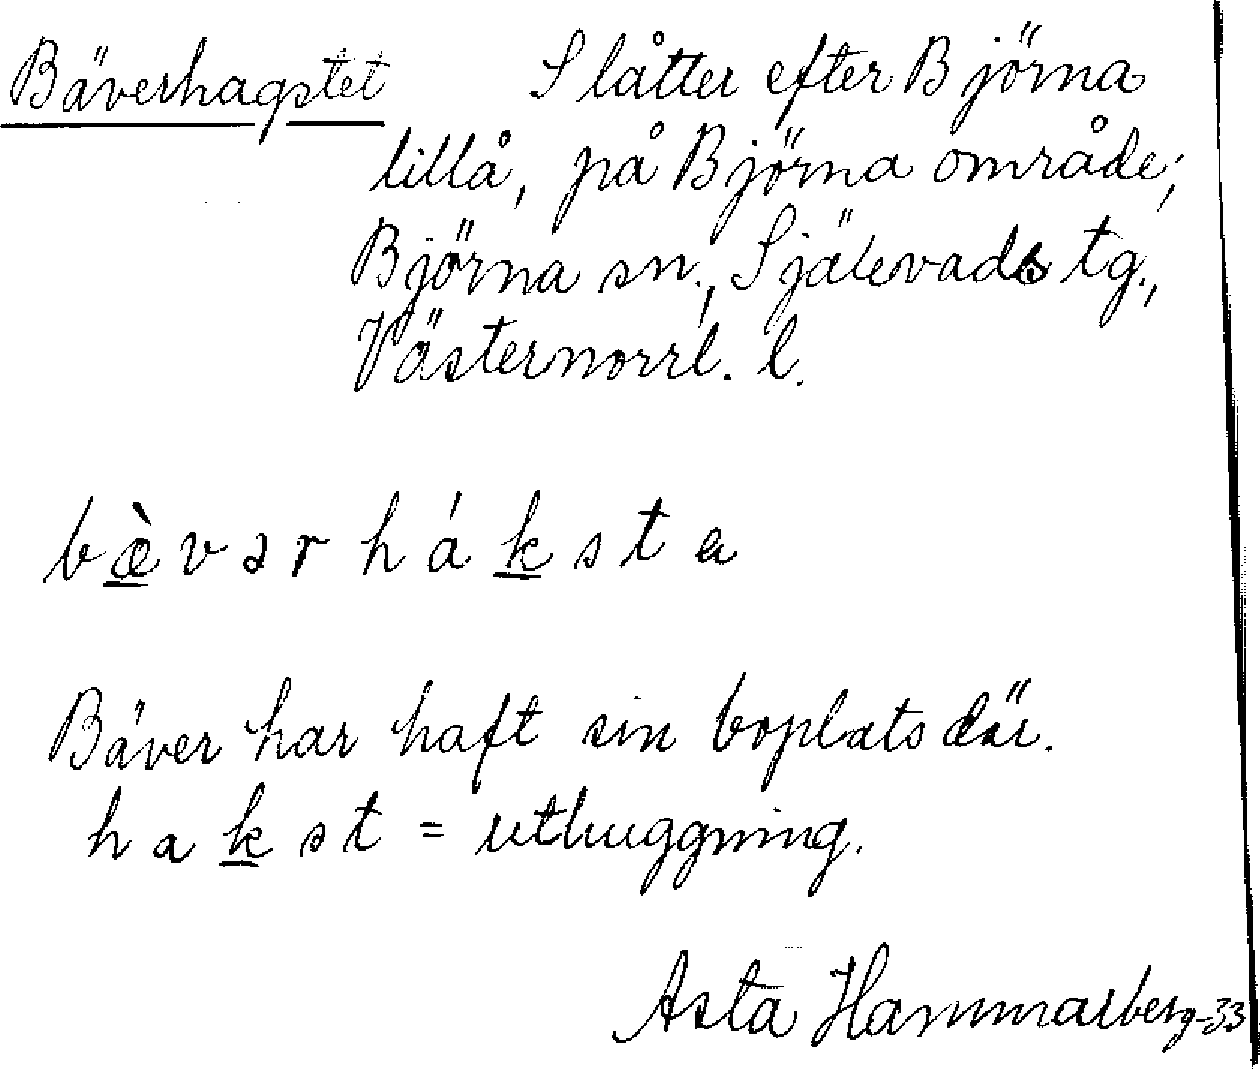 Bäverhagstet Slåtter efter Björna
lillå, på Björna område;
Björna sn., Själevads tg.,
Västernorrl. l.
bæ̲̀vərhák̲sta
Bäver har haft sin boplats där.
hak̲st = uthuggning.
Asta Hammarberg-33